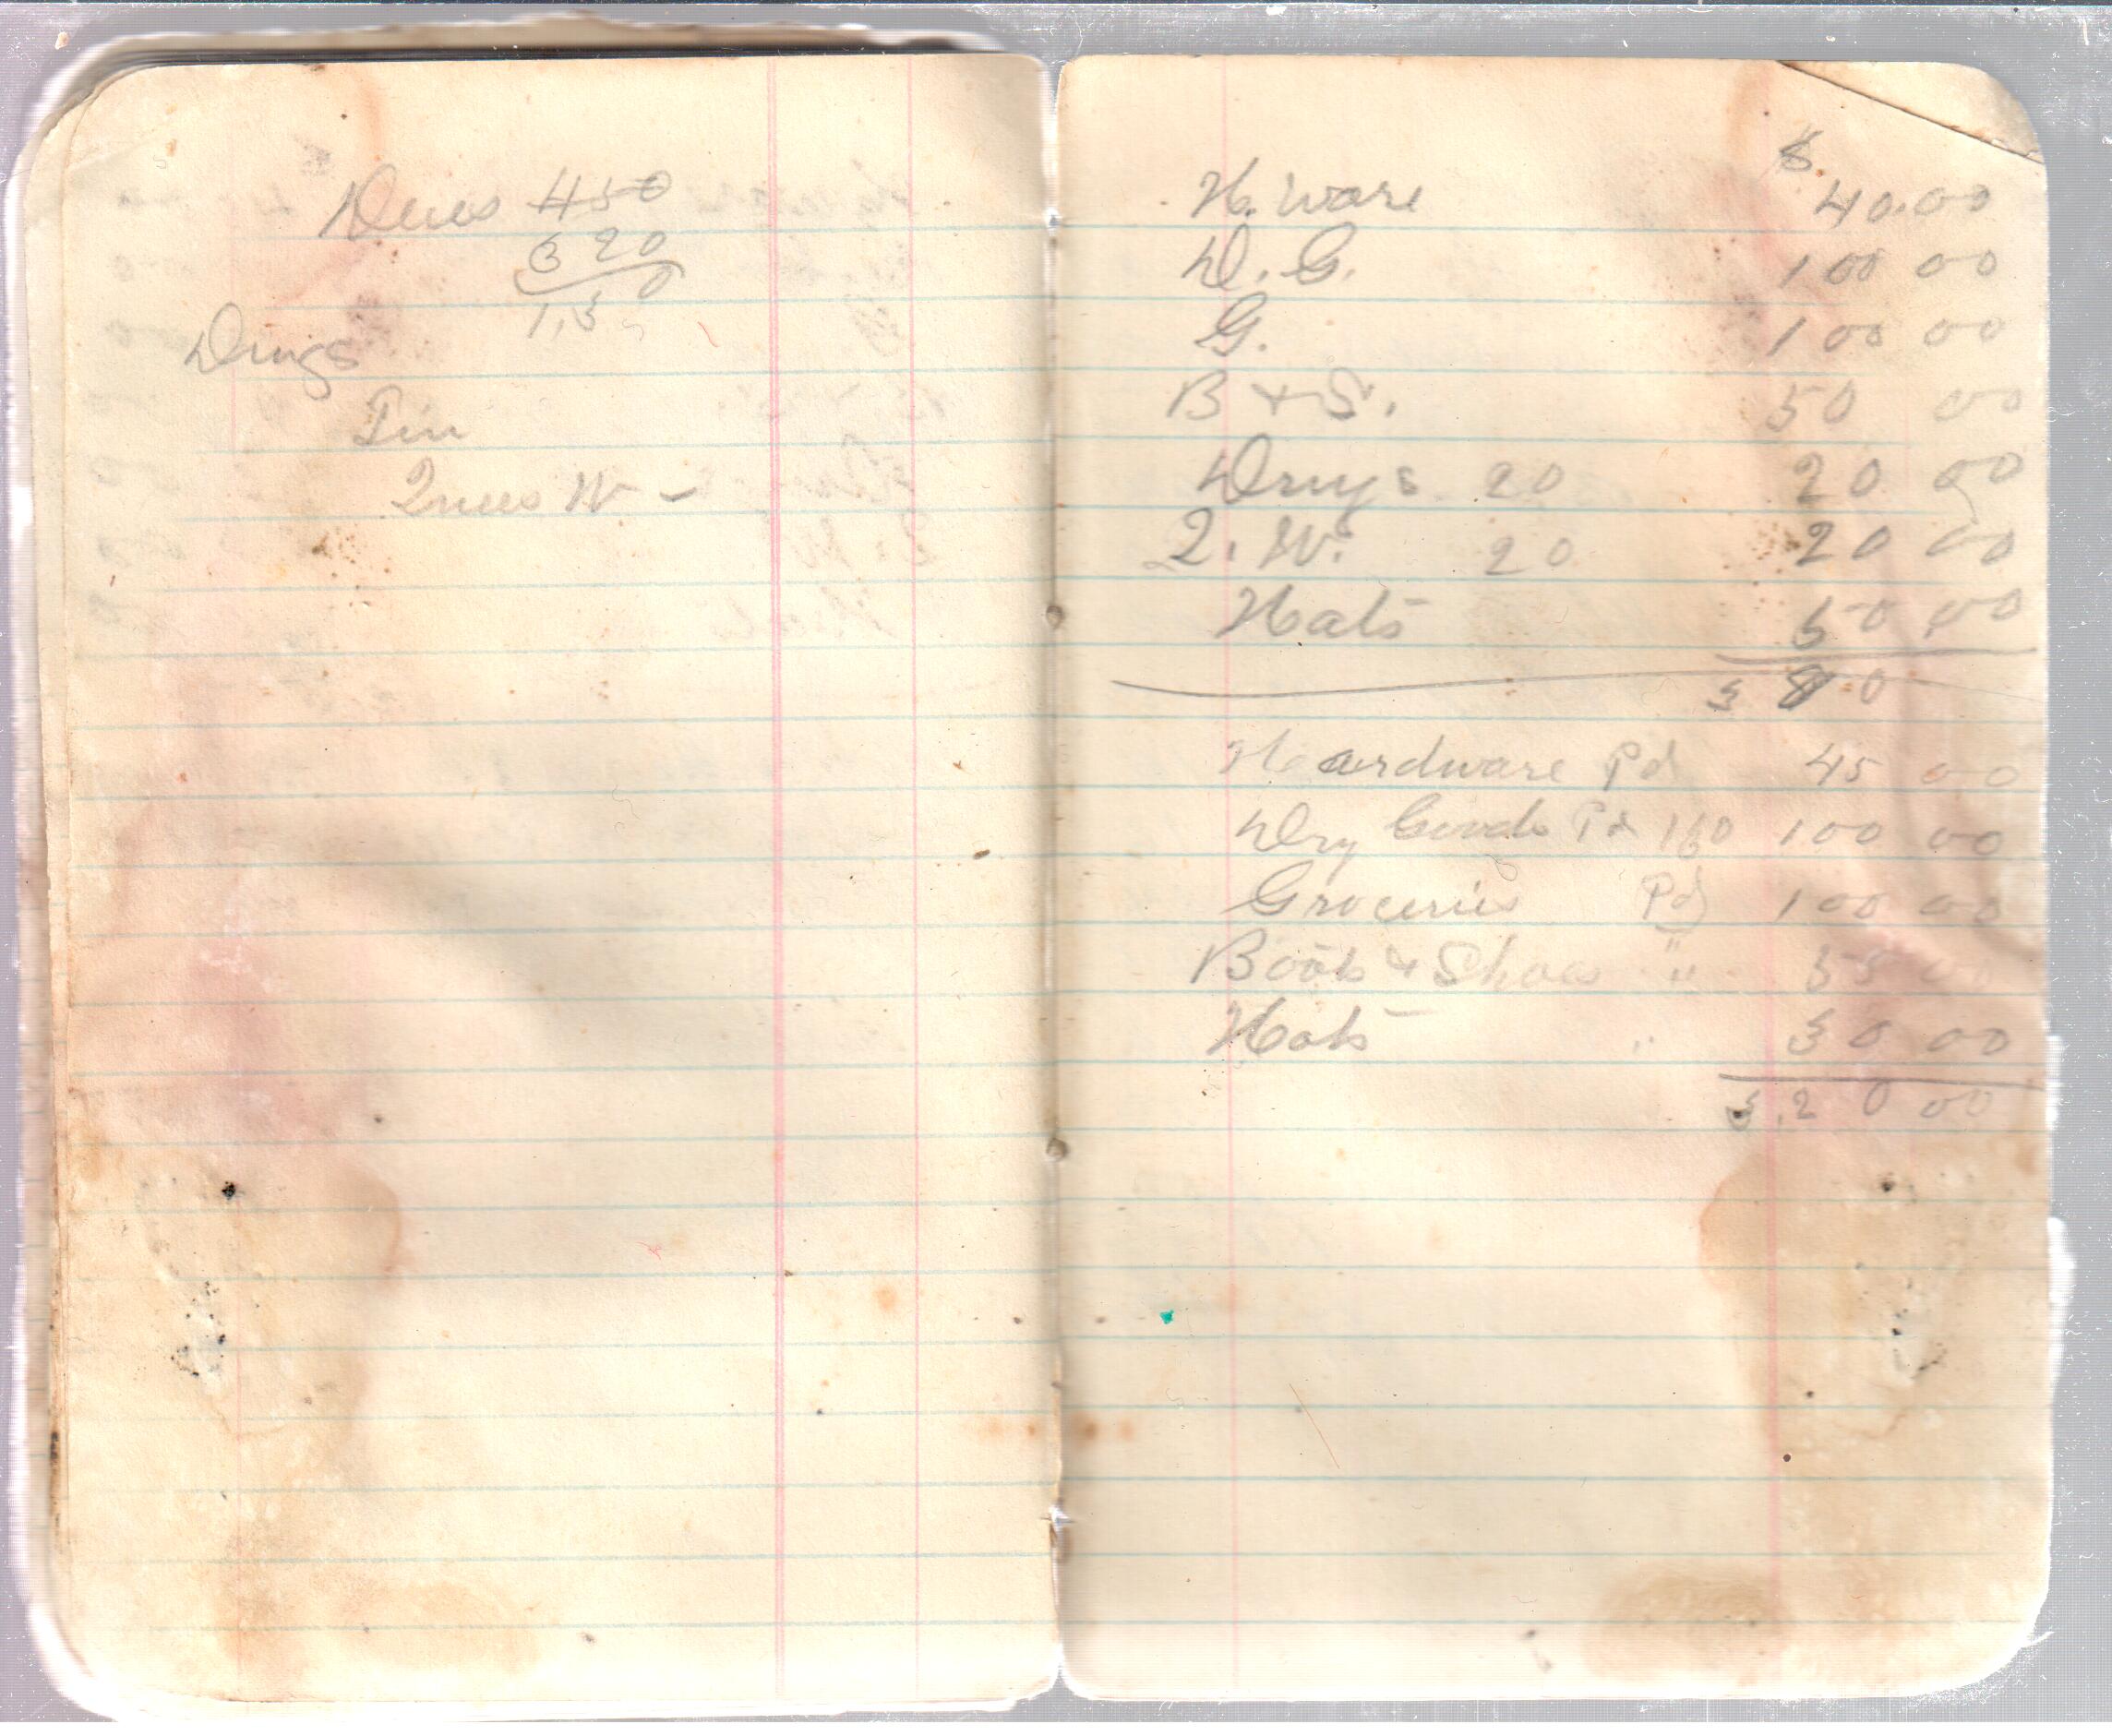 Dues 450
320
1,30
Drugs
Tin
Queens W -
$
H. Ware 40.00
D. G. 100 00
G. 100 00
B + S. 50 00
Drugs 20 20 00
Q. W. 20 20 00
Hats 50 00
380
Hardware Pd 45 00
Dry Goods Pd 100 00
Groceries Pd 100 00
Boots & Shoes " 00
Hats " 00
320 00